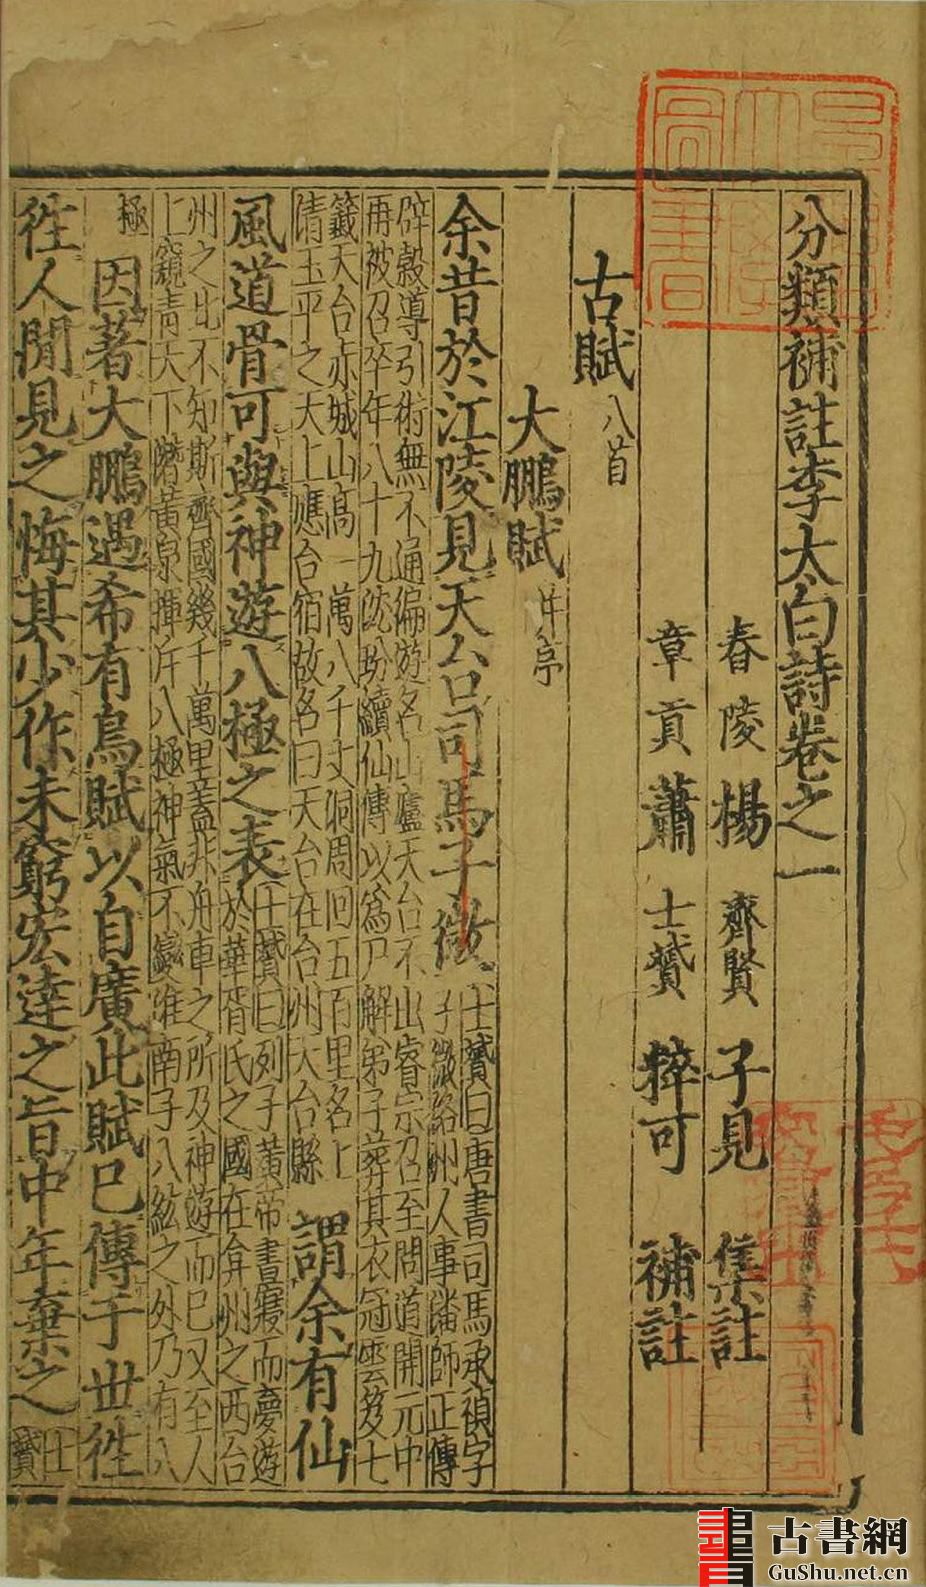 分類補註李太白詩卷之一
春陵楊齊賢子見集註
章貢蕭士贇粹可補註
古賦八首
大鵬賦并序
余昔於江陵見天台司馬子微
士贇曰唐書司馬承禎字
子微洛州人事潘師正傳
辟穀導引術無不通徧遊名山廬天台不出睿宗召至問道開元中
再被召卒年八十九沈玢續仙傳以為尸解弟子葬其衣冠雲笈七
籤天台赤城山高一萬八千丈洞周回五百里名上
清玉平之天上應台宿故名曰天台在台州天台縣
謂余有仙
風道骨可與神遊八極之表
士贇曰列子黃帝晝寢而夢遊
於華胥氏之國在弇州之西台
州之北不知斯齊國幾千萬里蓋非舟車之所及神遊而已又至人
上窺青天下潛黃泉揮斥八極神氣不變淮南子八紘之外乃有八
極
因著大鵬遇希有鳥賦以自廣此賦已傳于世往
往人間見之悔其少作未窮宏達之旨中年棄之
士
贇
古書網
GuShu.net.cn